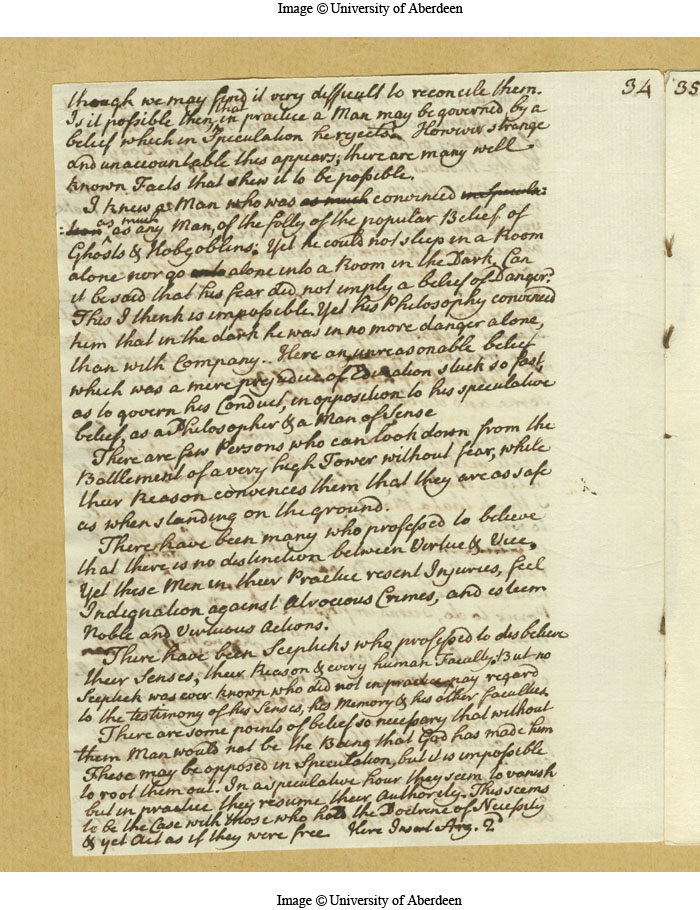 Image © University of Aberdeen
34 35
though we may find it very difficult to reconcile them.
Is it possible then, that in practice a Man may be governed by a
belief which in Speculation he rejects? However strange
and unaccountable this appears; there are many well
known Facts that shew it to be possible.
I knew a Man who was as much convinced in specula:
:tion as much as any Man, of the folly of the popular Belief of
Ghosts & Hobgoblins; Yet he could not sleep in a Room
alone nor go into alone into a Room in the Dark. Can
it be said that his fear did not imply a belief of Danger?
This I think is impossible. Yet his Philosophy convinced
him that in the dark he was in no more danger alone,
than with Company. Here an unreasonable belief
which was a mere prejudice of Education stuck so fast
as to govern his Conduct, in opposition to his speculative
belief, as a Philosopher & a Man of Sense
There are few Persons who can look down from the
Battlement of a very high Tower without fear, while
their Reason convinces them that they are as safe
as when standing on the ground.
There have been many who professed to believe
that there is no distinction between Virtue & Vice,
Yet these Men in their Practice resent Injuries, feel
Indignation against Atrocious Crimes, and esteem
Noble and Virtuous Actions.
There have been Scepticks who professed to disbelieve
their Senses, their Reason & every human Faculty. But no
Sceptick was ever known who did not in practice pay regard
to the testimony of his Senses, his Memory & his other faculties
There are some points of belief so necessary that without
them Man would not be the Being that God has made him
These may be opposed in Speculation, but it is impossible
to root them out. In a speculative hour they seem to vanish
but in practice they resume their Authority. This seems
to be the Case with those who hold the Doctrine of Necessity
& yet Act as if they were free. Here Insert Arg. 2d
Image © University of Aberdeen